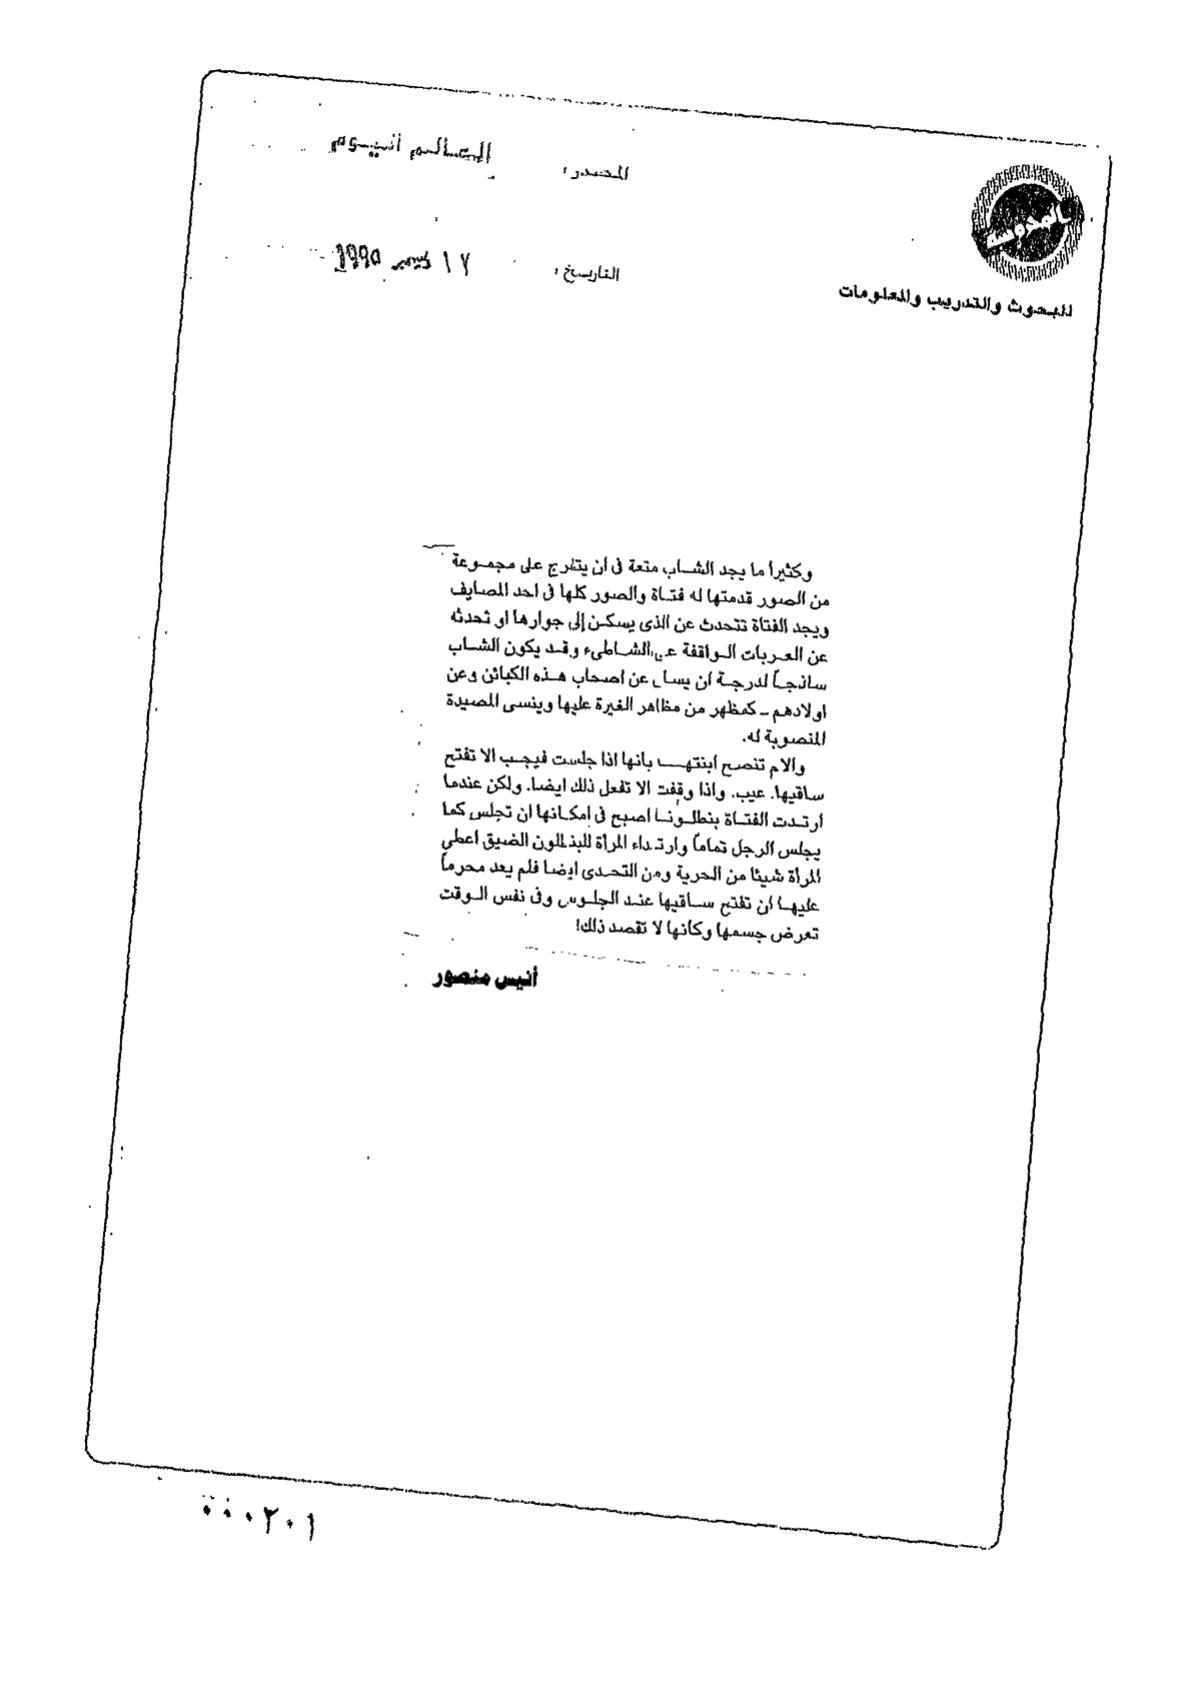 المصدر: العالم اليوم
التاريخ: ١٧ ديسمبر ١٩٩٥
المحروسة
للبحوث والتدريب والمعلومات
وكثيرا ما يجد الشاب متعة فى ان يتفرج على مجموعة
من الصور قدمتها له فتاة والصور كلها فى احد المصايف
ويجد الفتاة تتحدث عن الذى يسكن إلى جوارها او تحدثه
عن العربات الواقفة على الشاطىء وقد يكون الشاب
ساذجاً لدرجة ان يسال عن اصحاب هذه الكبائن وعن
اولادهم ـ كمظهر من مظاهر الغيرة عليها وينسى المصيدة
المنصوبة له.
والام تنصح ابنتها بانها اذا جلست فيجب الا تفتح
ساقيها. عيب. واذا وقفت الا تفعل ذلك ايضا. ولكن عندما
ارتدت الفتاة بنطلونا اصبح فى إمكانها ان تجلس كما
يجلس الرجل تماماً وارتداء المرأة للبنطلون الضيق اعطى
المرأة شيئا من الحرية ومن التحدى ايضا فلم يعد محرماً
عليها ان تفتح ساقيها عند الجلوس وفى نفس الوقت
تعرض جسمها وكانها لا تقصد ذلك!
أنيس منصور